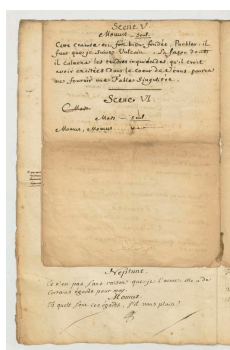 Scene V
Momus seul.
Cette crainte est fort bien fondée, Parbleu, il
faut que je suive Vulcain. La façon dont
il calmera les tendres inquietudes qu'il croit
avoir excitées dans le coeur de Venus, pourra
me fournir une Fable singuliere.
Scene VI.
Momus, Momus.
Neptune.
Ce n'est pas sans raison que je l'aime, elle a de
certains égards pour moy.
Momus.
Et quels sont ces égards, s'il vous plait?